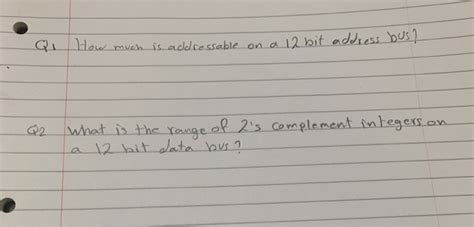 Q1 How much is addressable on a 12 bit address bus?
Q2 What is the range of 2's complement integers on
a 12 bit data bus?